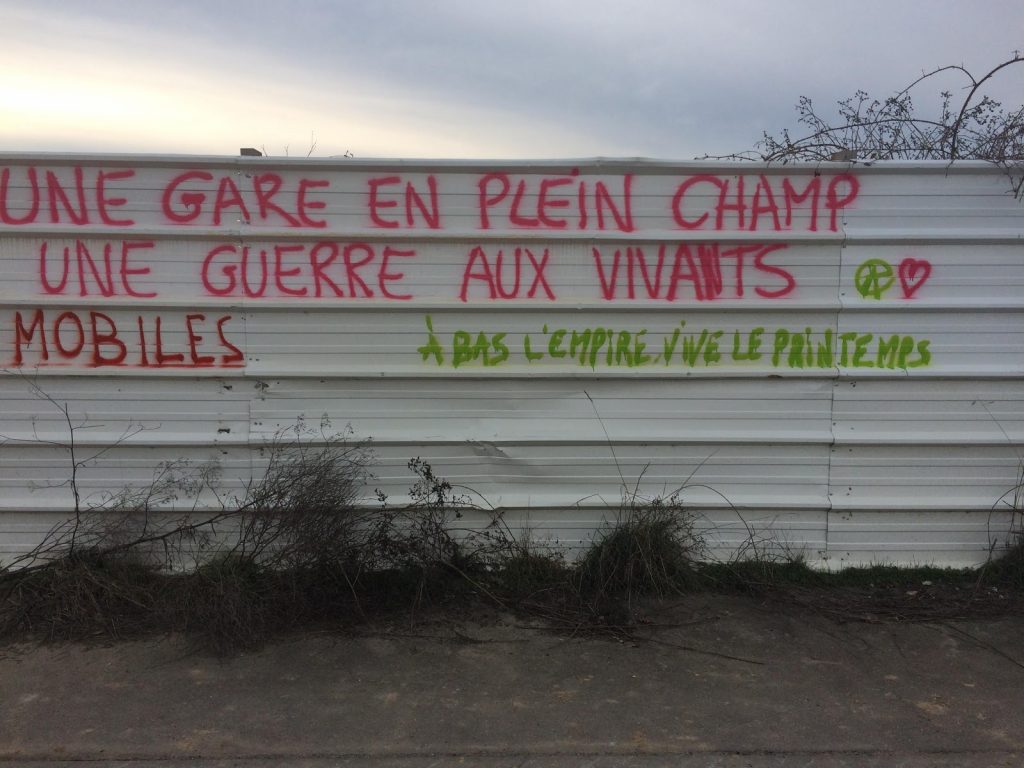 UNE GARE EN PLEiN CHAMP
UNE GUERRE AUX VIVANTS
MOBILES
À BAS L'EMPIRE, ViVE LE PRINTEMPS